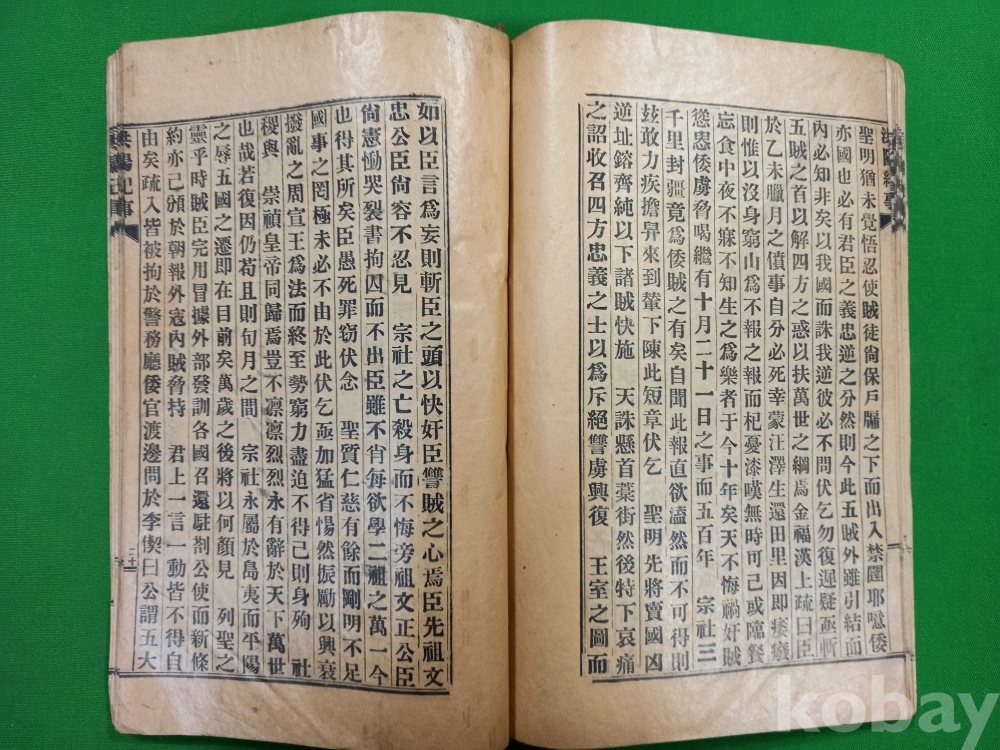 聖明猶未覺悟忍使賊徒尙保戶牖之下而出入禁闥耶噫倭
亦國也必有君臣之義忠逆之分然則今此五賊外雖引結而
內必知非矣以我國而誅我逆彼必不問伏乞勿復遲疑亟斬
五賊之首以解四方之惑以扶萬世之綱焉金福漢上疏曰臣
於乙未臘月之僨事自分必死幸蒙汪澤生還田里因即痿癈
則惟以沒身窮山爲不報之報而杞憂漆嘆無時可已或臨餐
忘食中夜不寐不知生之爲樂者于今十年矣天不悔禍奸賊
慫恿倭虜脅喝繼有十月二十一日之事而五百年 宗社三
千里封疆竟爲倭賊之有矣自聞此報直欲溘然而不可得則
玆敢力疾擔舁來到輦下陳此短章伏乞 聖明先將賣國凶
逆址鎔齊純以下諸賊快施 天誅懸首藁街然後特下哀痛
之詔收召四方忠義之士以爲斥絕讐虜興復 王室之圖而
如以臣言爲妄則斬臣之頭以快奸臣讐賊之心焉臣先祖文
忠公臣尙容不忍見 宗社之亡殺身而不悔旁祖文正公臣
尙憲慟哭裂書拘囚而不出臣雖不肖每欲學二祖之萬一今
也得其所矣臣愚死罪窃伏念 聖質仁慈有餘而剛明不足
國事之罔極未必不由於此伏乞亟加猛省惕然振勵以興衰
撥亂之周宣王爲法而終至勢窮力盡迫不得已則身殉 社
稷與 崇禎皇帝同歸焉豈不凛凛烈烈永有辭於天下萬世
也哉若復因仍苟且則旬月之間 宗社永屬於島夷而平陽
之辱五國之遷即在目前矣萬歲之後將以何顏見 列聖之
靈乎時賊臣完用冒據外部發訓各國召還駐剳公使而新條
約亦已頒於朝報外寇內賊脅持 君上一言一動皆不得自
由矣疏入皆被拘於警務廳倭官渡邊問於李偰曰公謂五大
洪陽紀事
二十
kobay